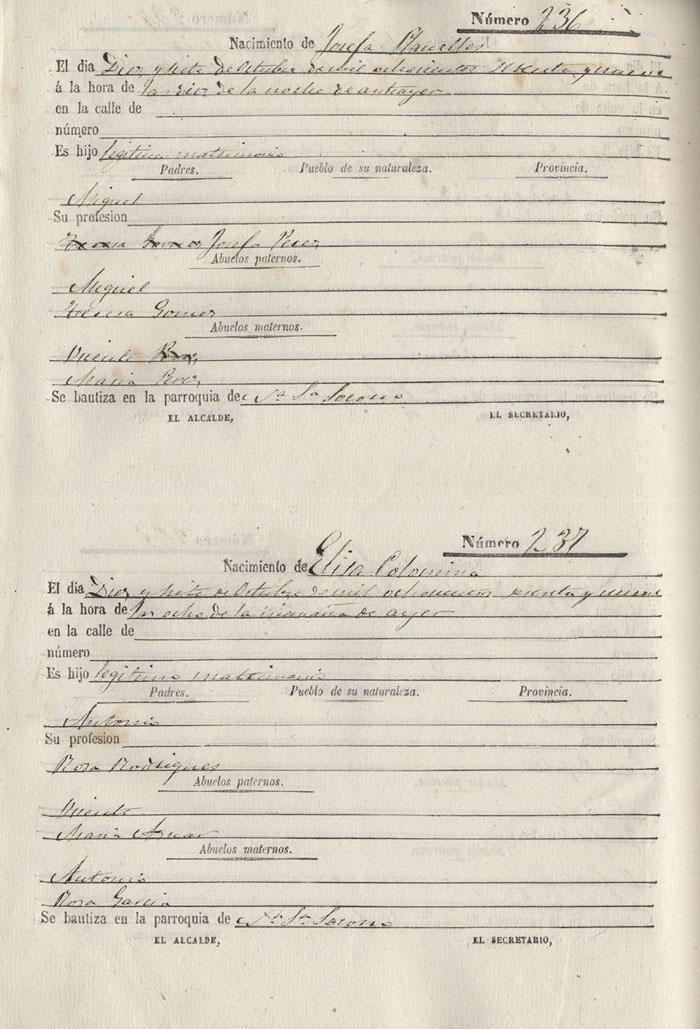 Número 236
Nacimiento de Josefa
El dia Diez y siete de Octubre de mil ochocientos sesenta y nueve
á la hora de las diez de la noche de antiayer
en la calle de
número
Es hijo legitimo matrimonio
Padres. Pueblo de su naturaleza. Provincia.
Miguel
Su profesion
Josefa Perez
Abuelos paternos.
Miguel
Teresa Gomez
Abuelos maternos.
Vicente
Maria
Se bautiza en la parroquia de Nª Sª Socorro
EL ALCALDE, EL SECRETARIO,
Número 237
Nacimiento de Elisa Colomina
El dia Diez y siete de Octubre de mil ochocientos sesenta y nueve
á la hora de las ocho de la mañana de ayer
en la calle de
número
Es hijo legitimo matrimonio
Padres. Pueblo de su naturaleza. Provincia.
Antonio
Su profesion
Rosa Rodrigues
Abuelos paternos.
Vicente
Maria Aznar
Abuelos maternos.
Antonio
Rosa Garcia
Se bautiza en la parroquia de Nª Sª Socorro
EL ALCALDE, EL SECRETARIO,